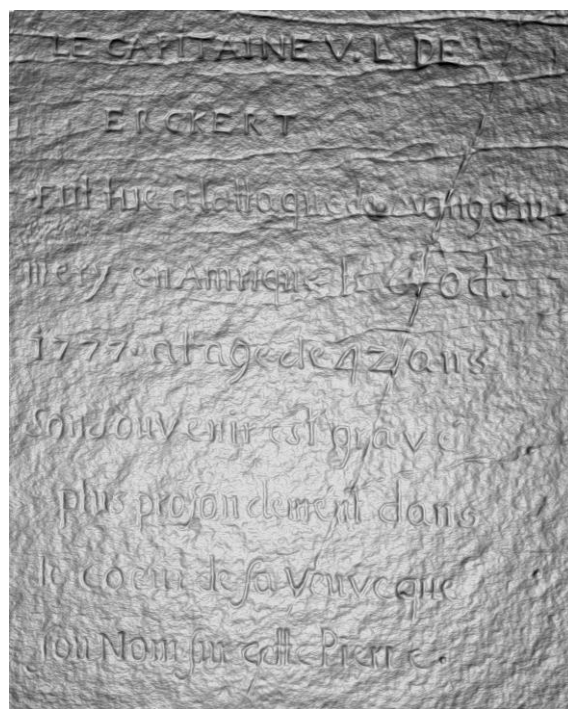 LE CAPITAINE V. L. DE
ERCKERT
Fut tue a lattaque de Mongom-
mery, en Amrique le 6 Oct.
1777. al'age de 42 ans
son souvenir est gravé
plus profondement dans
le coeur de sa Veuve que
son Nom sur cette Pierre.